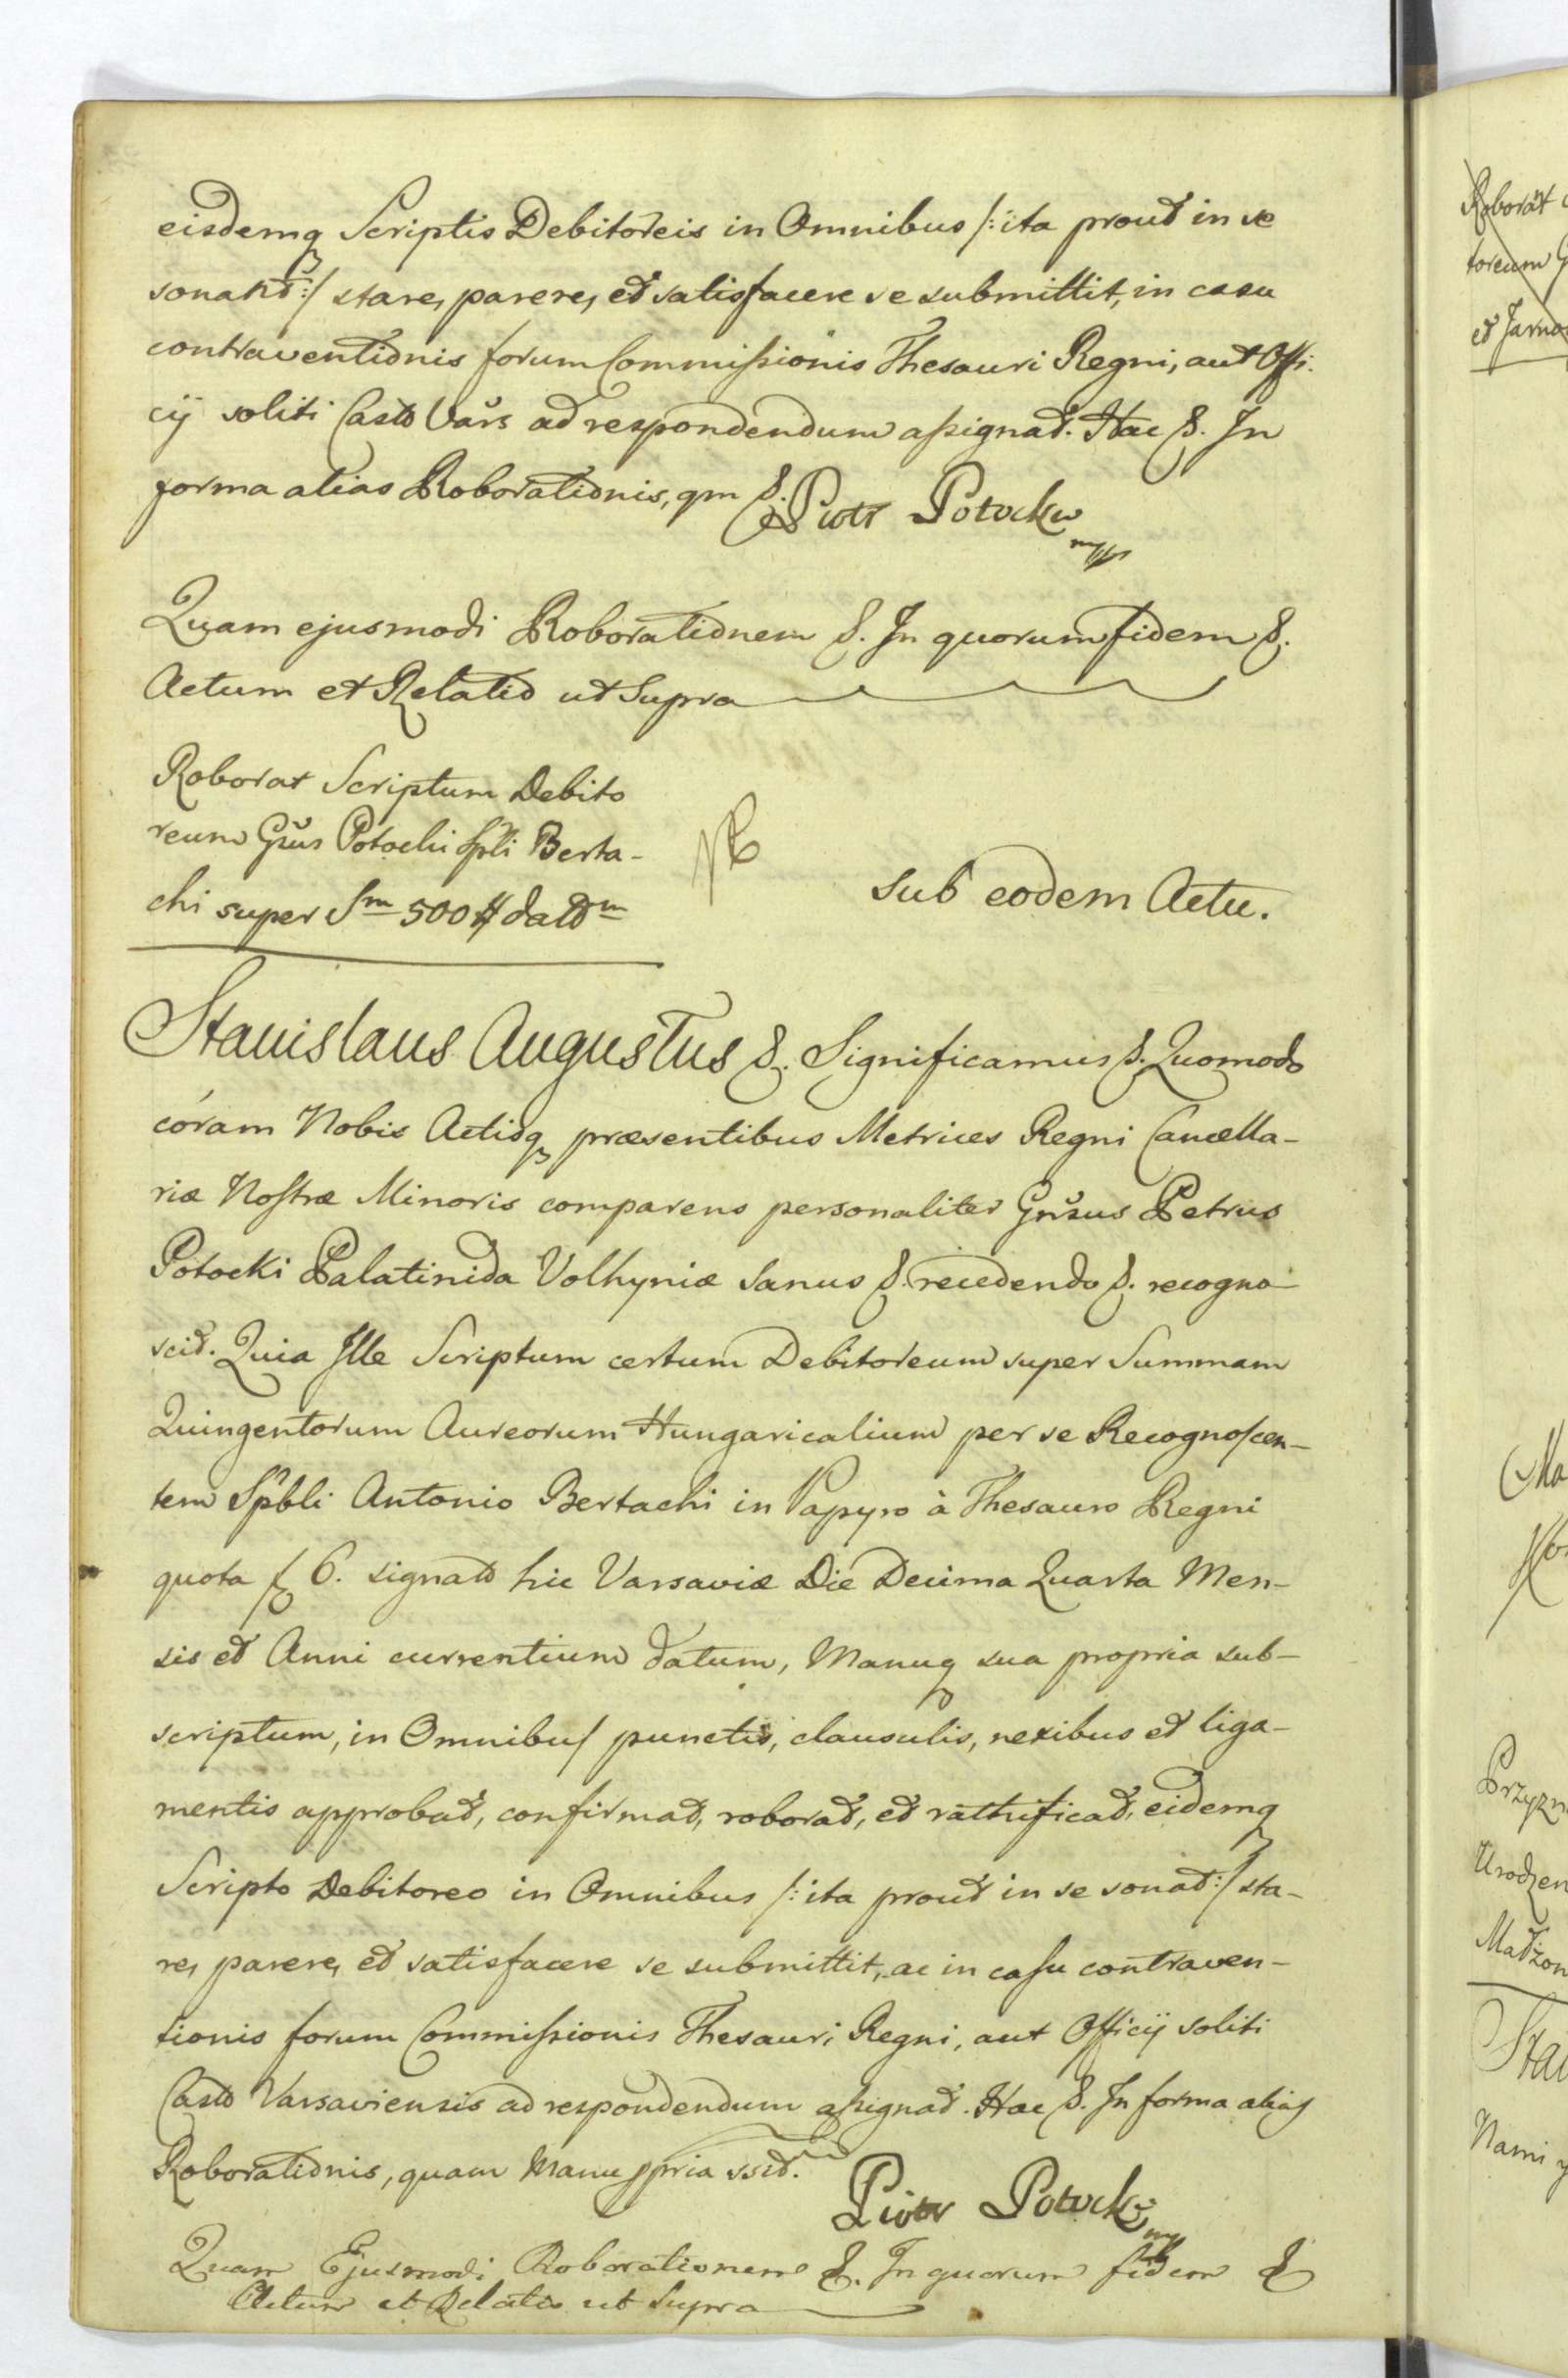 eisdemq Scriptis Debitoreis in Omnibus /: ita prout in se
sonant :/ stare, parere, et satisfacere se submittit, in casu
contraventionis forum Commissionis Thesauri Regni, aut Offi-
cij soliti Castr Vars ad respondendum assignat. Hac &. In
forma alias Roborationis, qm &. Piotr Potocki
mpp
Quam ejusmodi Roborationem &. In quorum fidem &.
Actum et Relatio ut Supra
Roborat Scriptum Debito
reum Gsus Potocki Spli Berta-
chi super Sm 500 # datm
sub eodem Actu.
Stanislaus Augustus &. Significamus &. Quomodo
coram Nobis Actisq præsentibus Metrices Regni Cancella-
riæ Nostræ Minoris comparens personaliter Gnsus Petrus
Potocki Palatinida Volhyniæ sanus &. recedendo &. recogno-
scit. Quia Ille Scriptum certum Debitoreum super Summam
Quingentorum Aureorum Hungaricalium per se Recognoscen-
tem Spbli Antonio Bertachi in Papyro à Thesauro Regni
quota f 6. signato hic Varsaviæ Die Decima Quarta Men-
sis et Anni currentium datum, Manuq sua propria sub-
scriptum, in Omnibus punctis, clausulis, nexibus et liga-
mentis approbat, confirmat, roborat, et rathificat, eidemq
Scripto Debitoreo in Omnibus /: ita prout in se sonat :/ sta-
re, parere, et satisfacere se submittit, ac in casu contraven-
tionis forum Commissionis Thesauri Regni, aut Officij soliti
Castr Varsaviensis ad respondendum assignat. Hac &. In forma alias
Roborationis, quam Manu ppria sst.
Piotr Potocki
mp
Quam Ejusmodi Roborationem &. In quorum fidem &
Actum et Relatio ut Supra
Roborat
toreum G
et Jarno
Ma
Przyzn
Urodzen
Małżon
Sta
Nami y